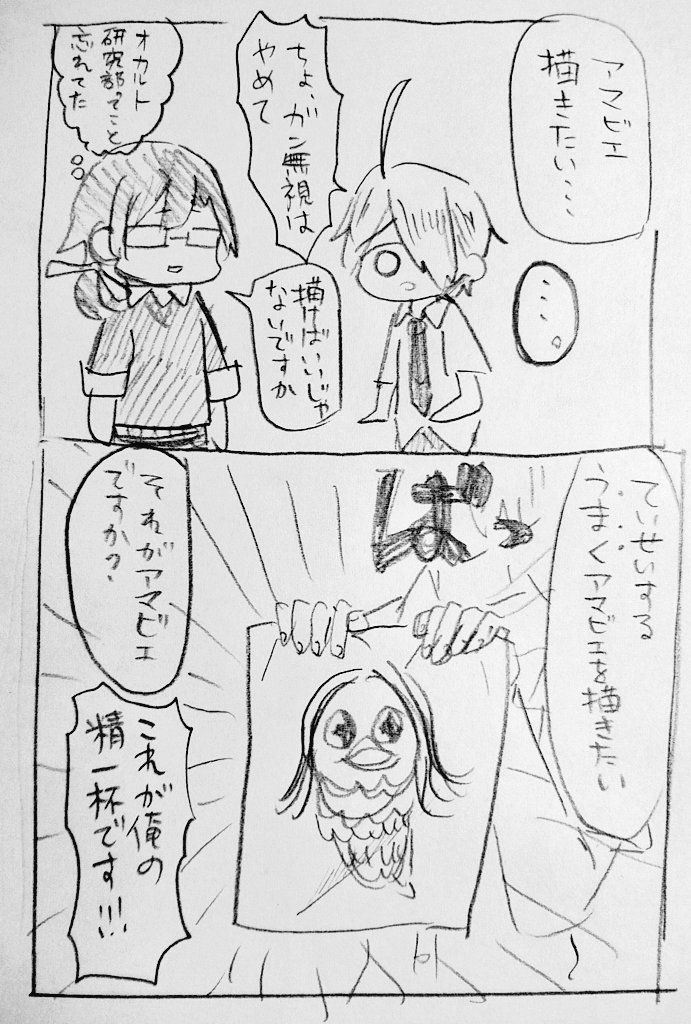 アマビエ
描きたい…
…。
ちょ、ガン無視は
やめて
描けばいいじゃ
ないですか
オカルト
研究部ってこと
忘れてた
ていせいする
うまくアマビエを描きたい
ばっ
それがアマビエ
ですか?
これが俺の
精一杯です!!!